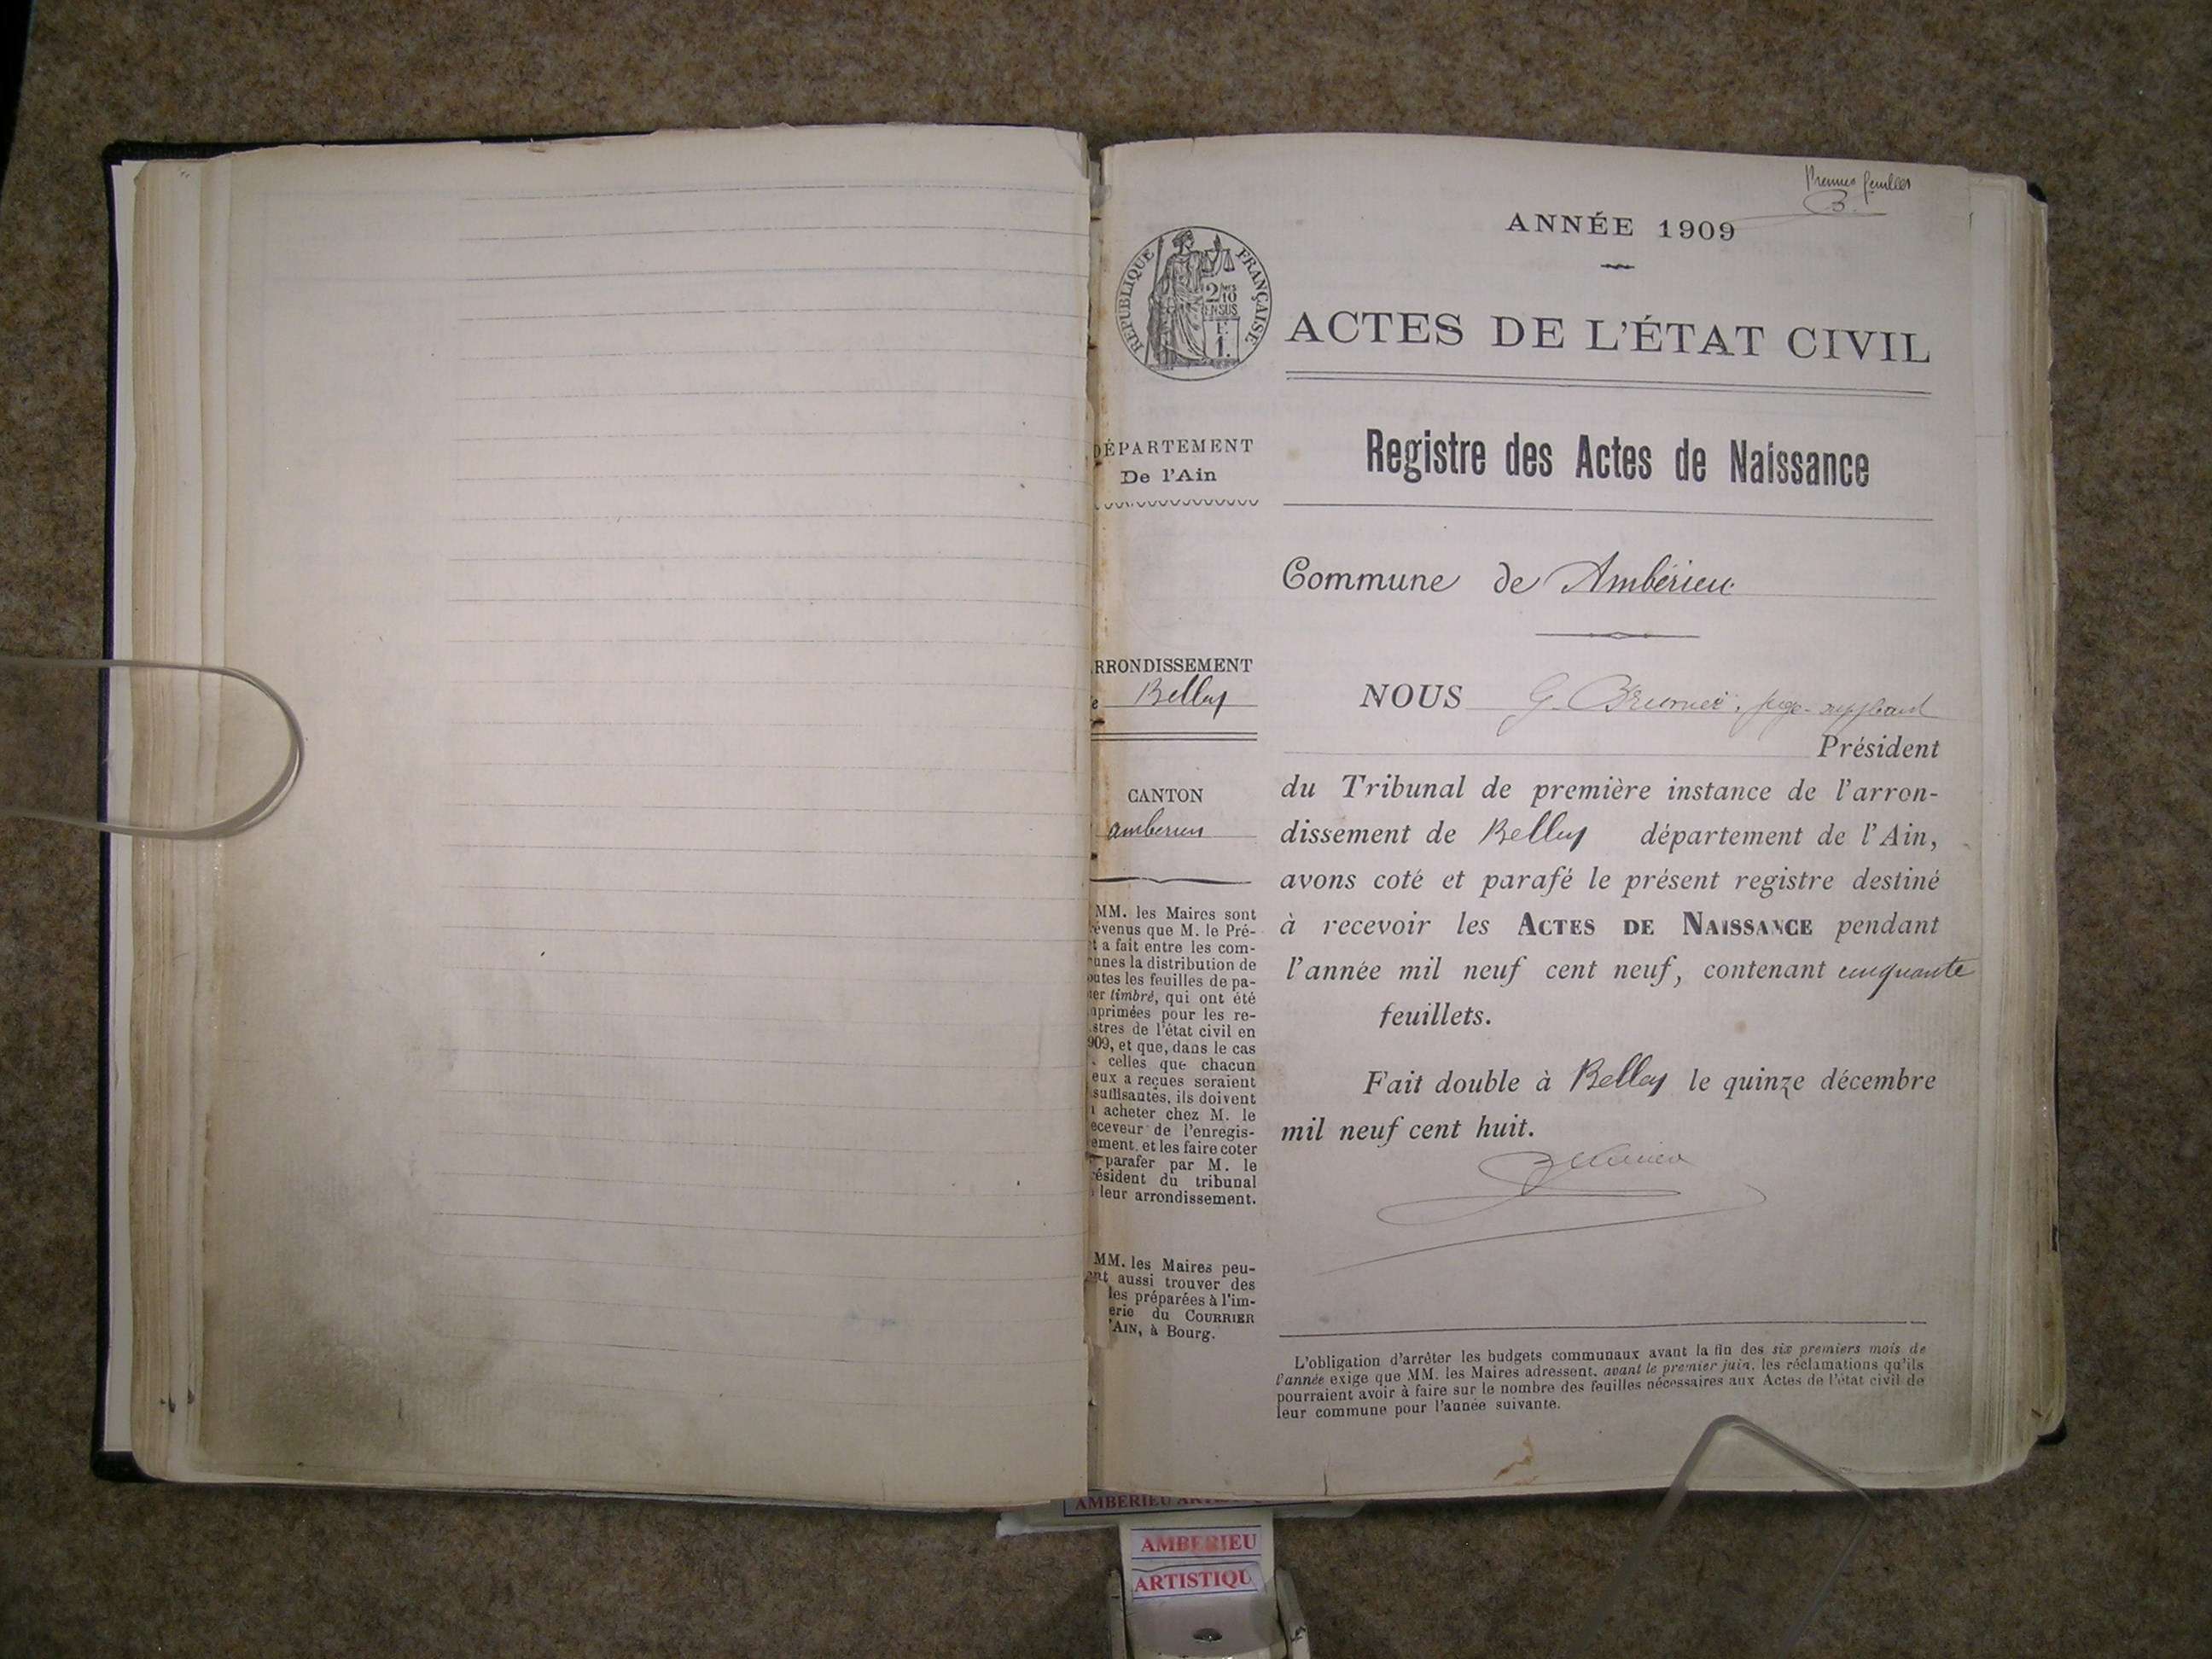 Premier feuillet
ANNÉE 1909
RÉPUBLIQUE FRANÇAISE
2/10
EN SUS
F.
1.
ACTES DE L'ÉTAT CIVIL
DÉPARTEMENT
De l'Ain
Registre des Actes de Naissance
Commune de Ambérieu
RRONDISSEMENT
e Belley
CANTON
amberieu
MM. les Maires sont
évenus que M. le Pré-
t a fait entre les com-
unes la distribution de
outes les feuilles de pa-
ier timbré, qui ont été
mprimées pour les re-
stres de l'état civil en
909, et que, dans le cas
celles que chacun
eux a reçues seraient
suffisantes, ils doivent
acheter chez M. le
eceveur de l'enregis-
ement, et les faire coter
parafer par M. le
ésident du tribunal
leur arrondissement.
MM. les Maires peu-
ent aussi trouver des
les préparées à l'im-
erie du COURRIER
'AIN, à Bourg.
NOUS G. Brunier, juge-suppléant
Président
du Tribunal de première instance de l'arron-
dissement de Belley département de l'Ain,
avons coté et parafé le présent registre destiné
à recevoir les ACTES DE NAISSANCE pendant
l'année mil neuf cent neuf, contenant cinquante
feuillets.
Fait double à Belley le quinze décembre
mil neuf cent huit.
L'obligation d'arrêter les budgets communaux avant la fin des six premiers mois de
l'année exige que MM. les Maires adressent, avant le premier juin, les réclamations qu'ils
pourraient avoir à faire sur le nombre des feuilles nécessaires aux Actes de l'état civil de
leur commune pour l'année suivante.
AMBERIEU
AMBERIEU
ARTISTIQU